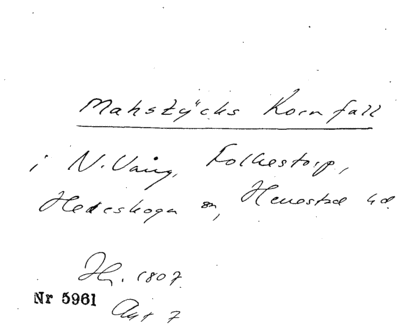 Mahstycks Kornfall
i N. Vång, Folkestorp,
Hedeskoga sn, Herrestad hd.
1807
Nr 5961
Akt 7